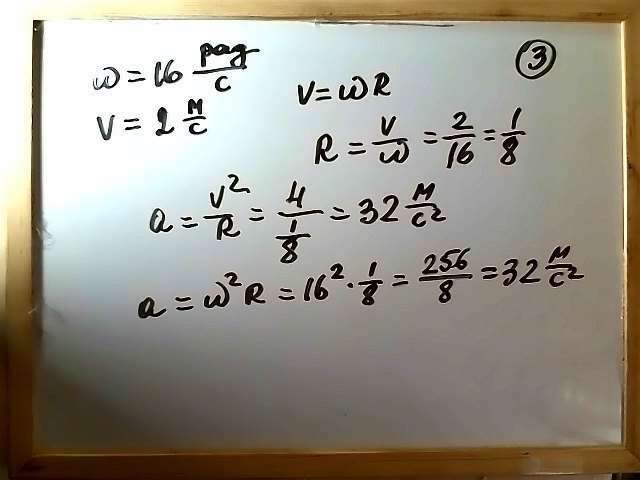 ③
ω = 16 рад/с
V = ωR
V = 2 м/с
R = V/ω = 2/16 = 1/8
a = V²/R = 4/(1/8) = 32 м/с²
a = ω²R = 16² · 1/8 = 256/8 = 32 м/с²